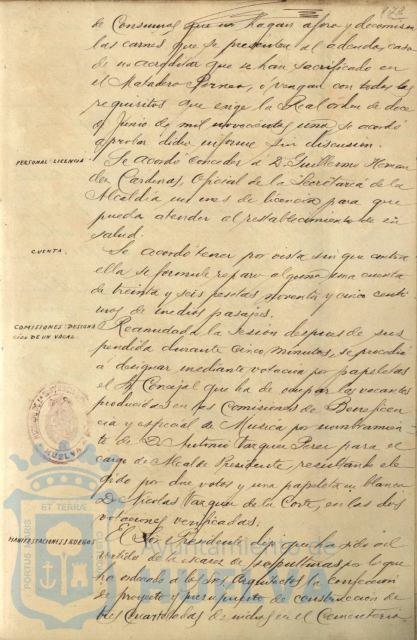 178
de Consumos que no hagan aforo y decomisen
las carnes que se presenten al adeudo, caso
de no acreditar que se han sacrificado en
el Matadero Perneo, ó vengan con todos los
requisitos que exige la Real orden de doce
de Junio de mil novecientos uno se acordó
aprobar dicho informe sin discusion.
PERSONAL: LICENCIA
Se acordó conceder a D. Guillermo Hernan
dez Cardenas, Oficial de la Secretaria de la
Alcaldia un mes de licencia para que
pueda atender al restablecimiento de su
salud.
CUENTA.
Se acordó tener por vista sin que contra
ella se formule reparo alguno una cuenta
de treinta y seis pesetas noventa y cinco centi
mos de medios pasajes.
COMISIONES: DESIGNA
CION DE UN VOCAL
Reanudada la Sesion despues de sus
pendida durante cinco minutos, se procedió
á designar mediante votacion por papeletas
el Sr. Concejal que ha de ocupar las vacantes
producidas en las Comisiones de Beneficen
cia y especial de Musica por nombramien
to de D. Antonio Vazquez Perez para el
cargo de Alcalde Presidente, resultando ele
gido por dos votos y una papeleta en blanco
D. Nicolas Vazquez de la Corte, en las dos
votaciones verificadas.
MANIFESTACIONES Y RUEGOS
El Sor. Presidente dijo que ha sido ad
vertido de la escasez de sepulturas por lo que
ha ordenado a los Sres. Arquitectos la confeccion
de proyecto y presupuesto de construccion de
tres cuarteladas de nichos en el Cementerio
HUELVA
ET TERRAE
PORTUS MARIS
Ayuntamiento de